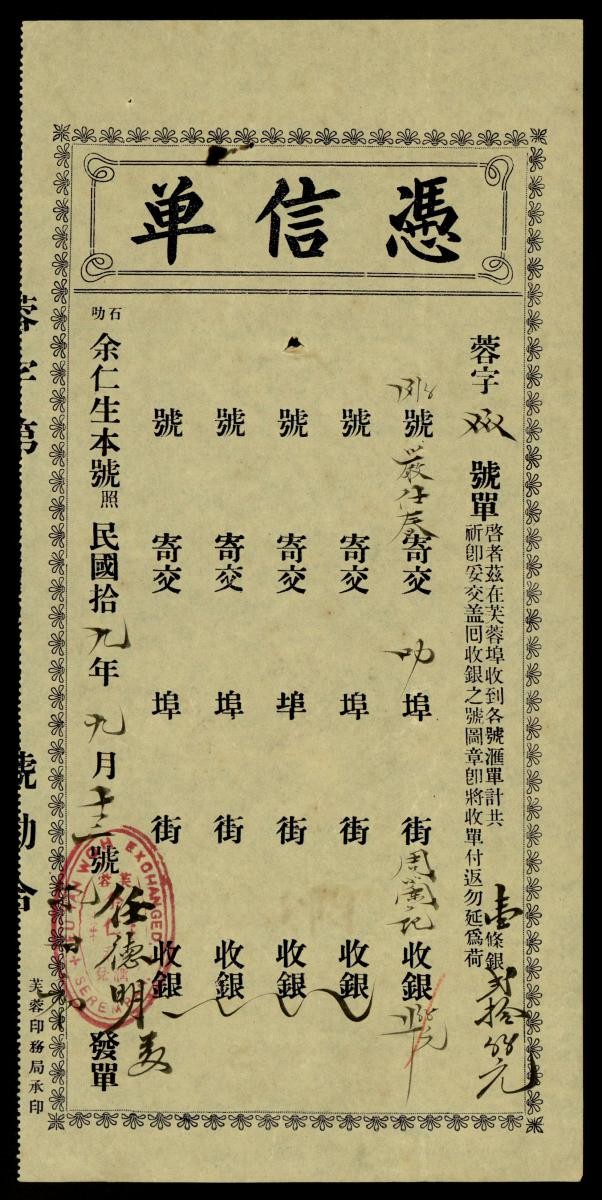 憑信单
蓉字 號單
啓者茲在芙蓉埠收到各號滙單計共壹條銀弍拾 元
祈卽妥交盖囘收銀之號圖章卽將收單付返勿延爲荷
號 寄交叻埠 街周蘭記收銀 元
號 寄交 埠 街 收銀
號 寄交 埠 街 收銀
號 寄交 埠 街 收銀
號 寄交 埠 街 收銀
石叻余仁生本號照 民國拾九年九月十三號 任德明 發單
WOH EXCHANGED
SEREMBAN
芙蓉
蓉字第 號勘合
芙蓉印務局承印